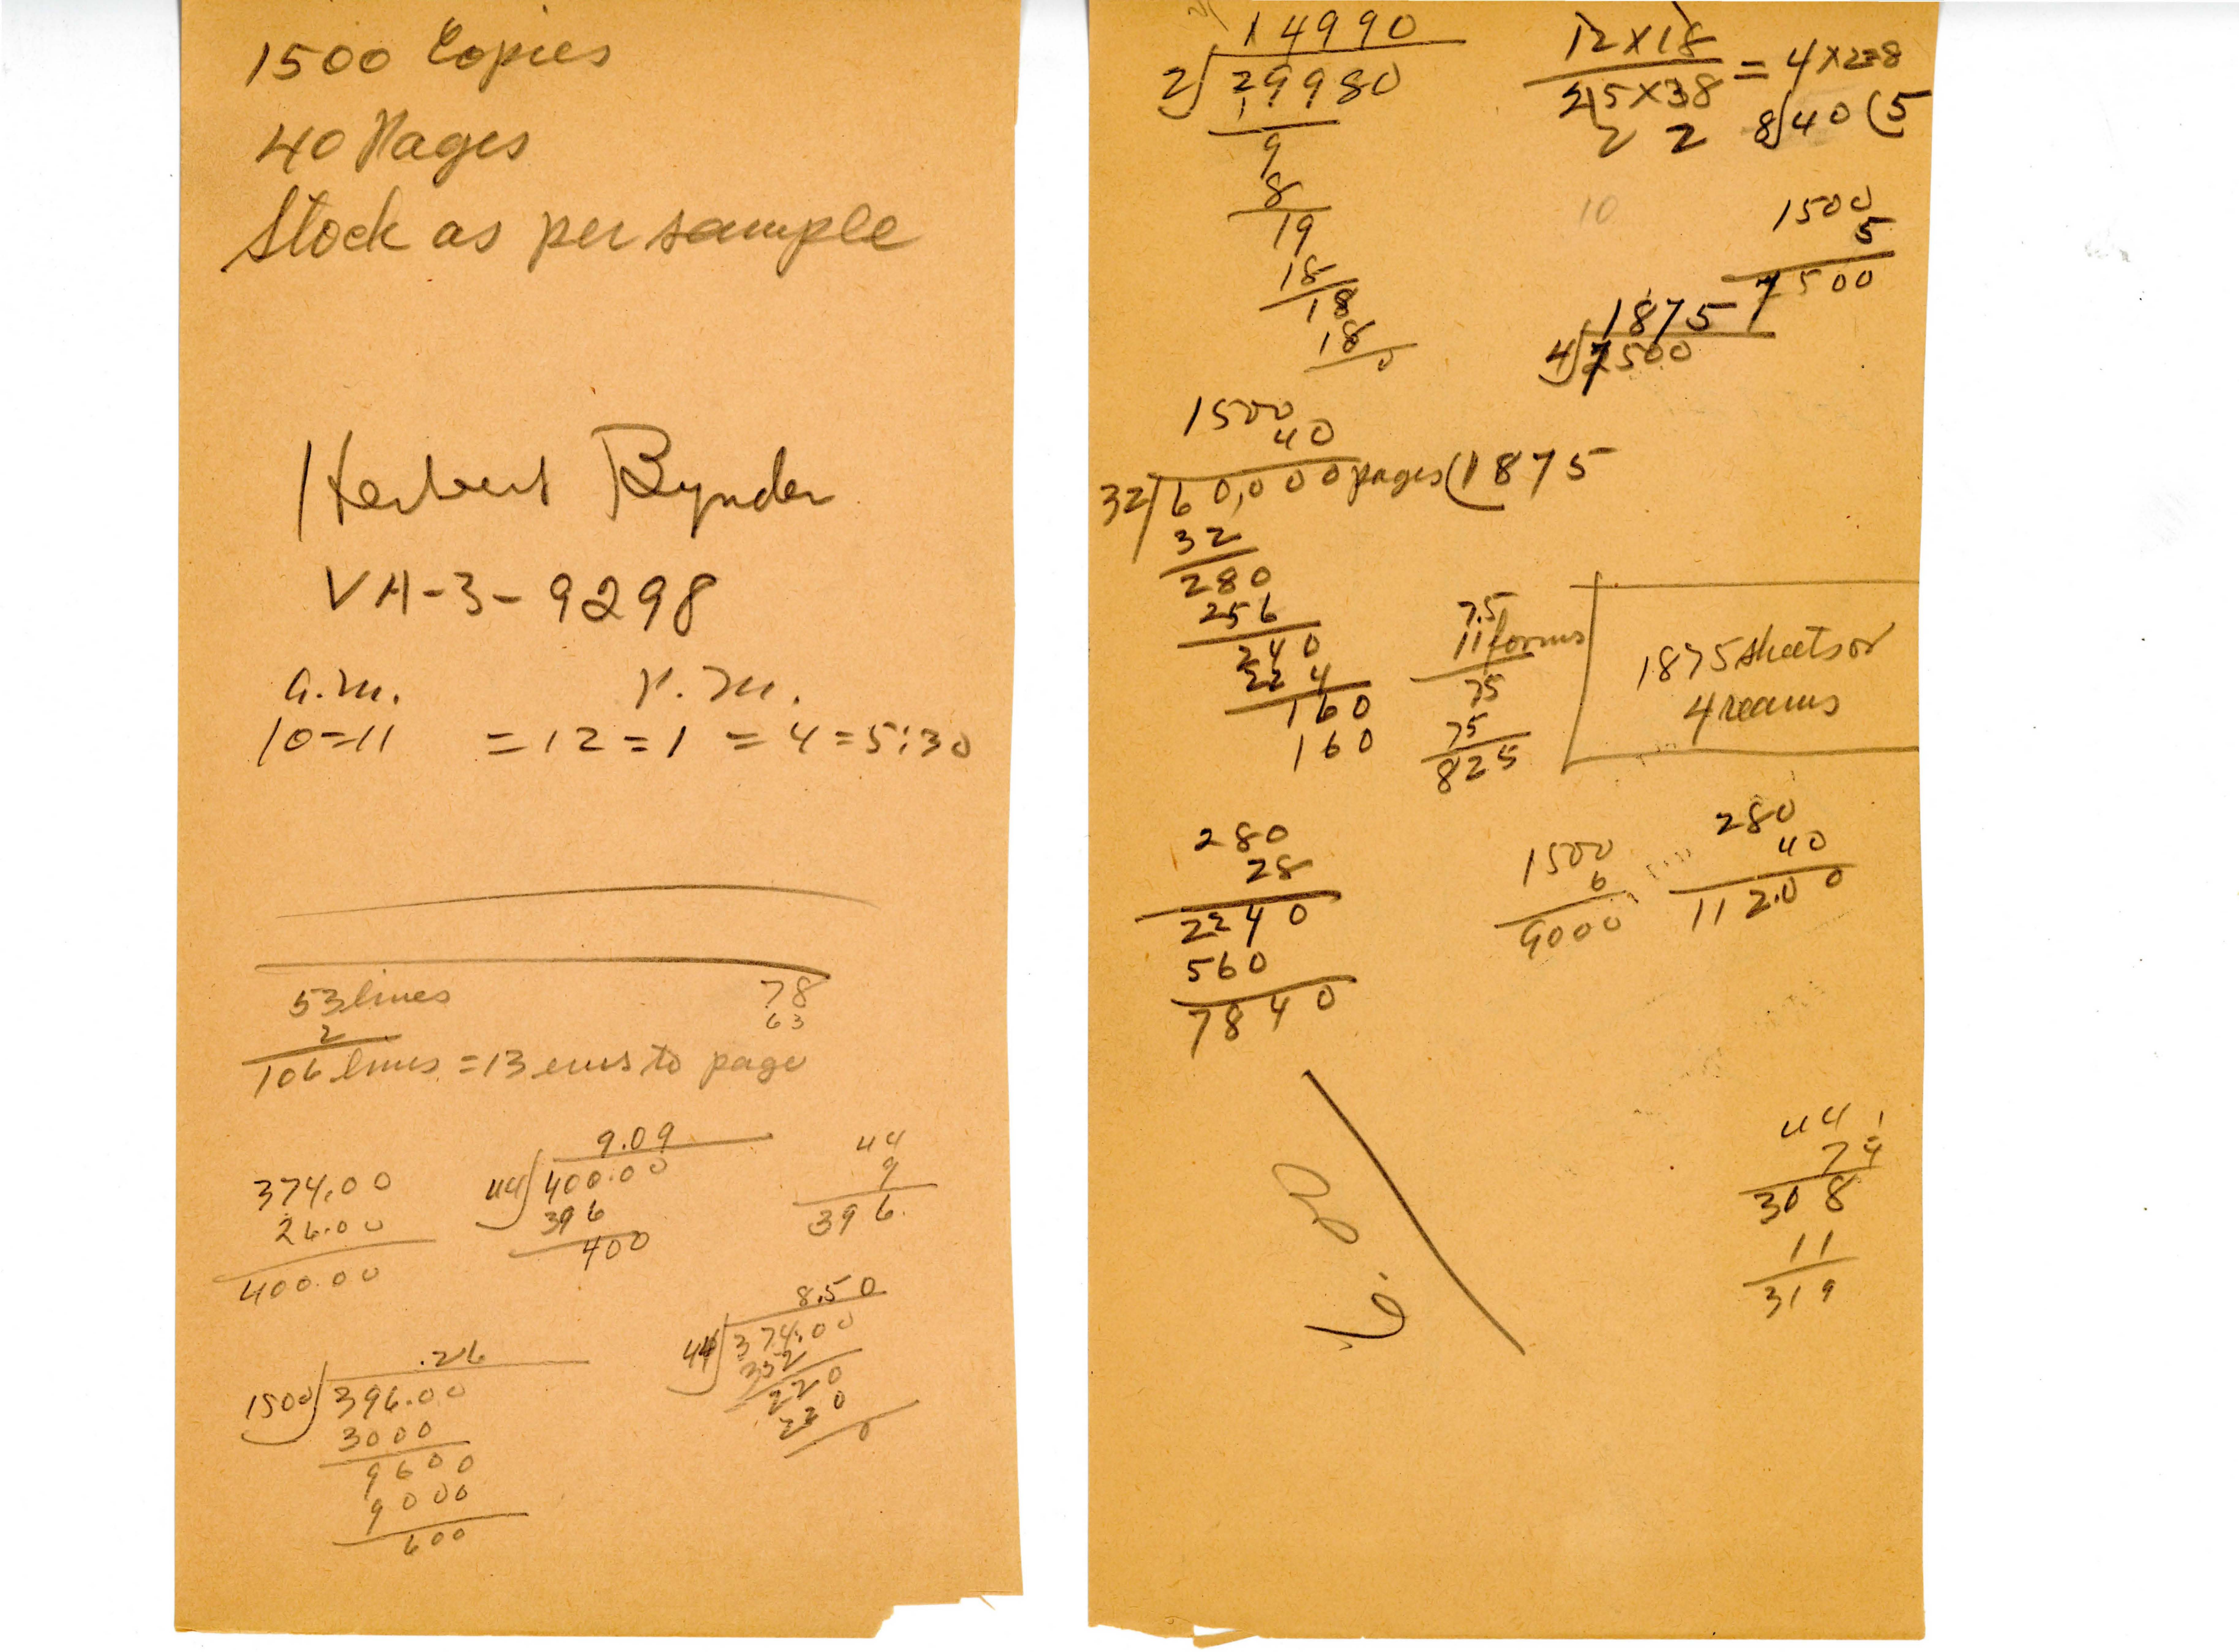 1500 Copies
40 Pages
Stock as per sample
Herbert Bynder
VA-3-9298
a.m. p.m.
10=11 =12=1 =4=5:30
53 lines
2
106 lines = 13 ems to page
78
63
374.00
26.00
400.00
9.09
44 400.00
396
400
44
9
396.
.26
1500 396.00
3000
9600
9000
600
8.50
44 374.00
352
220
220
0
14990
2 29980
9
8
19
18
18
18
0
12X18
25X38
2 2
= 4X2=8
8 40 (5
10
1500
5
7500
1875
4 7500
1500
40
32 60,000 pages (1875
32
280
256
240
224
160
160
7.5
11 forms
75
75
825
1875 sheets or
4 reams
280
28
2240
560
7840
1500
6
9000
280
40
112.00
44
308
11
319